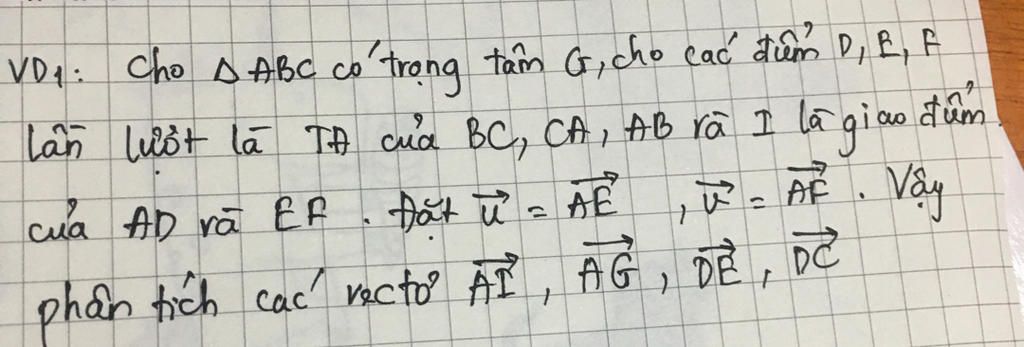 VD1: Cho Δ ABC có trọng tâm G, cho các điểm D, E, F
lần lượt là TĐ của BC, CA, AB và I là giao điểm
của AD và EF. Đặt u⃗ = AE⃗, v⃗ = AF⃗. Vậy
phân tích các vectơ AI⃗, AG⃗, DE⃗, DC⃗